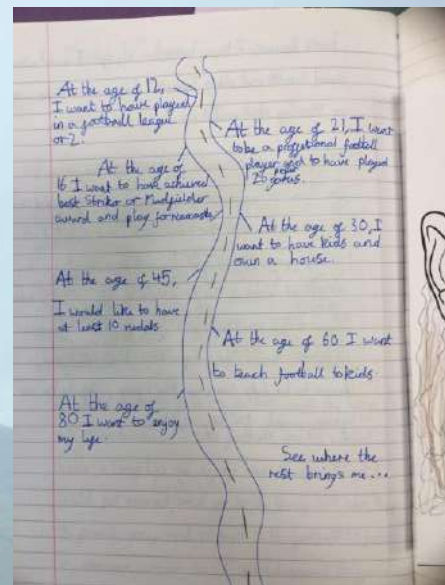 At the age of 12,
I want to have played
in a football league
or 2.
At the age of 21, I want
to be a proffetional football
player and to have played
25 games.
At the age of
16 I want to have achieved
best Striker or Midfielder
award and play for
At the age of 30, I
want to have kids and
own a house.
At the age of 45,
I would like to have
at least 10 medals
At the age of 60 I want
to teach football to kids.
At the age of
80 I want to enjoy
my life.
See where the
rest brings me...